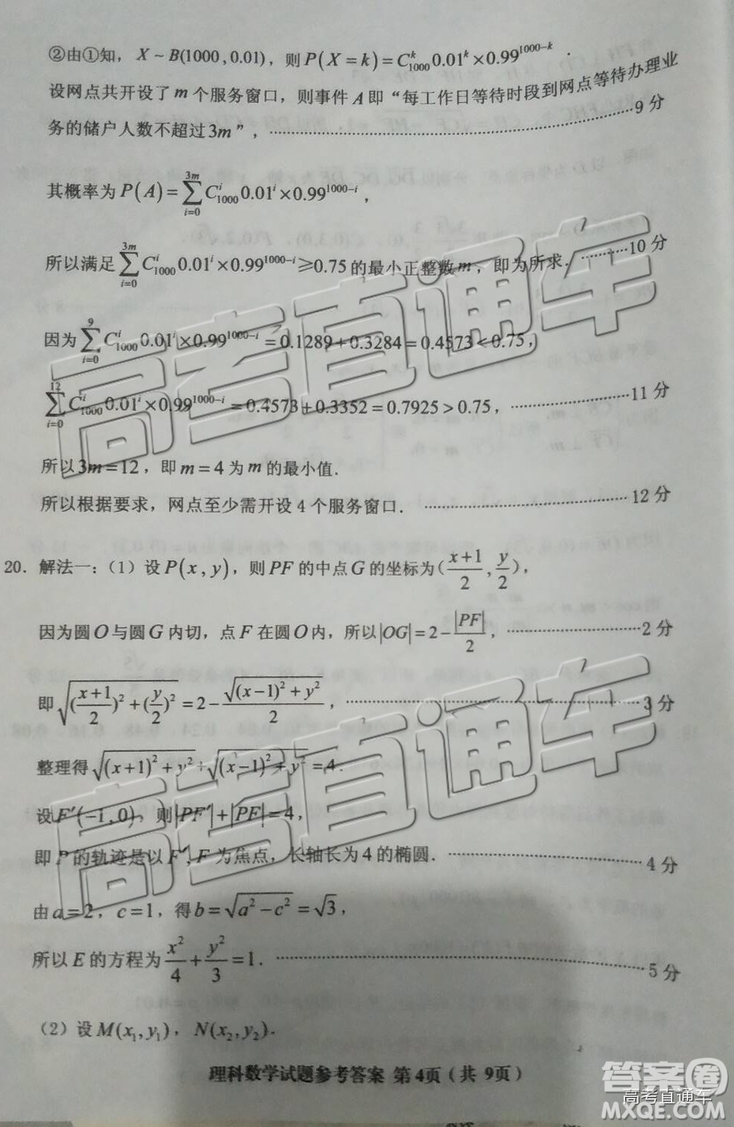 ②由①知，X～B(1000,0.01)，则P(X=k)=C₁₀₀₀ᵏ0.01ᵏ×0.99¹⁰⁰⁰⁻ᵏ．
设网点共开设了m个服务窗口，则事件A即“每工作日等待时段到网点等待办理业
务的储户人数不超过3m”，…………9分
其概率为P(A)=∑_{i=0}^{3m}C₁₀₀₀ⁱ0.01ⁱ×0.99¹⁰⁰⁰⁻ⁱ，
所以满足∑_{i=0}^{3m}C₁₀₀₀ⁱ0.01ⁱ×0.99¹⁰⁰⁰⁻ⁱ≥0.75的最小正整数m，即为所求．…………10分
因为∑_{i=0}^{9}C₁₀₀₀ⁱ0.01ⁱ×0.99¹⁰⁰⁰⁻ⁱ=0.1289+0.3284=0.4573<0.75，
∑_{i=0}^{12}C₁₀₀₀ⁱ0.01ⁱ×0.99¹⁰⁰⁰⁻ⁱ=0.4573+0.3352=0.7925>0.75，…………11分
所以3m=12，即m=4为m的最小值．
所以根据要求，网点至少需开设4个服务窗口．…………12分
20．解法一：（1）设P(x,y)，则PF的中点G的坐标为((x+1)/2,y/2)，
因为圆O与圆G内切，点F在圆O内，所以|OG|=2−|PF|/2，…………2分
即√(((x+1)/2)²+(y/2)²)=2−√((x−1)²+y²)/2，…………3分
整理得√((x+1)²+y²)+√((x−1)²+y²)=4．
设F′(−1,0)，则|PF′|+|PF|=4，
即P的轨迹是以F′，F为焦点，长轴长为4的椭圆．…………4分
由a=2，c=1，得b=√(a²−c²)=√3，
所以E的方程为x²/4+y²/3=1．…………5分
（2）设M(x₁,y₁)，N(x₂,y₂)．
理科数学试题参考答案 第4页（共 9页）
高考直通车
高考直通车
答案圈
高考直通车
MXQE.COM